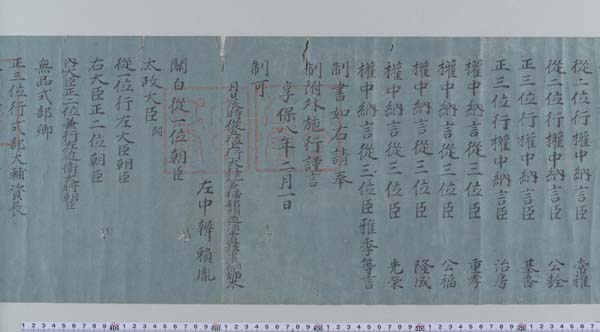 從二位行權中納言臣 常雅
從二位行權中納言臣 公詮
正三位行權中納言臣 基香
正三位行權中納言臣 治房
權中納言從三位臣 重孝
權中納言從三位臣 公福
權中納言從三位臣 隆成
權中納言從三位臣 光榮
權中納言從三位臣雅季等言
制書如右請奉
制附外施行謹言
享保八年二月一日
制可
月辰時從
左中辨頼胤
關白從一位朝臣
太政大臣 闕
從一位行左大臣朝臣
右大臣正二位朝臣
内大臣正二位兼行左近衛大將朝臣
無品式部卿
正三位行式部大輔資長